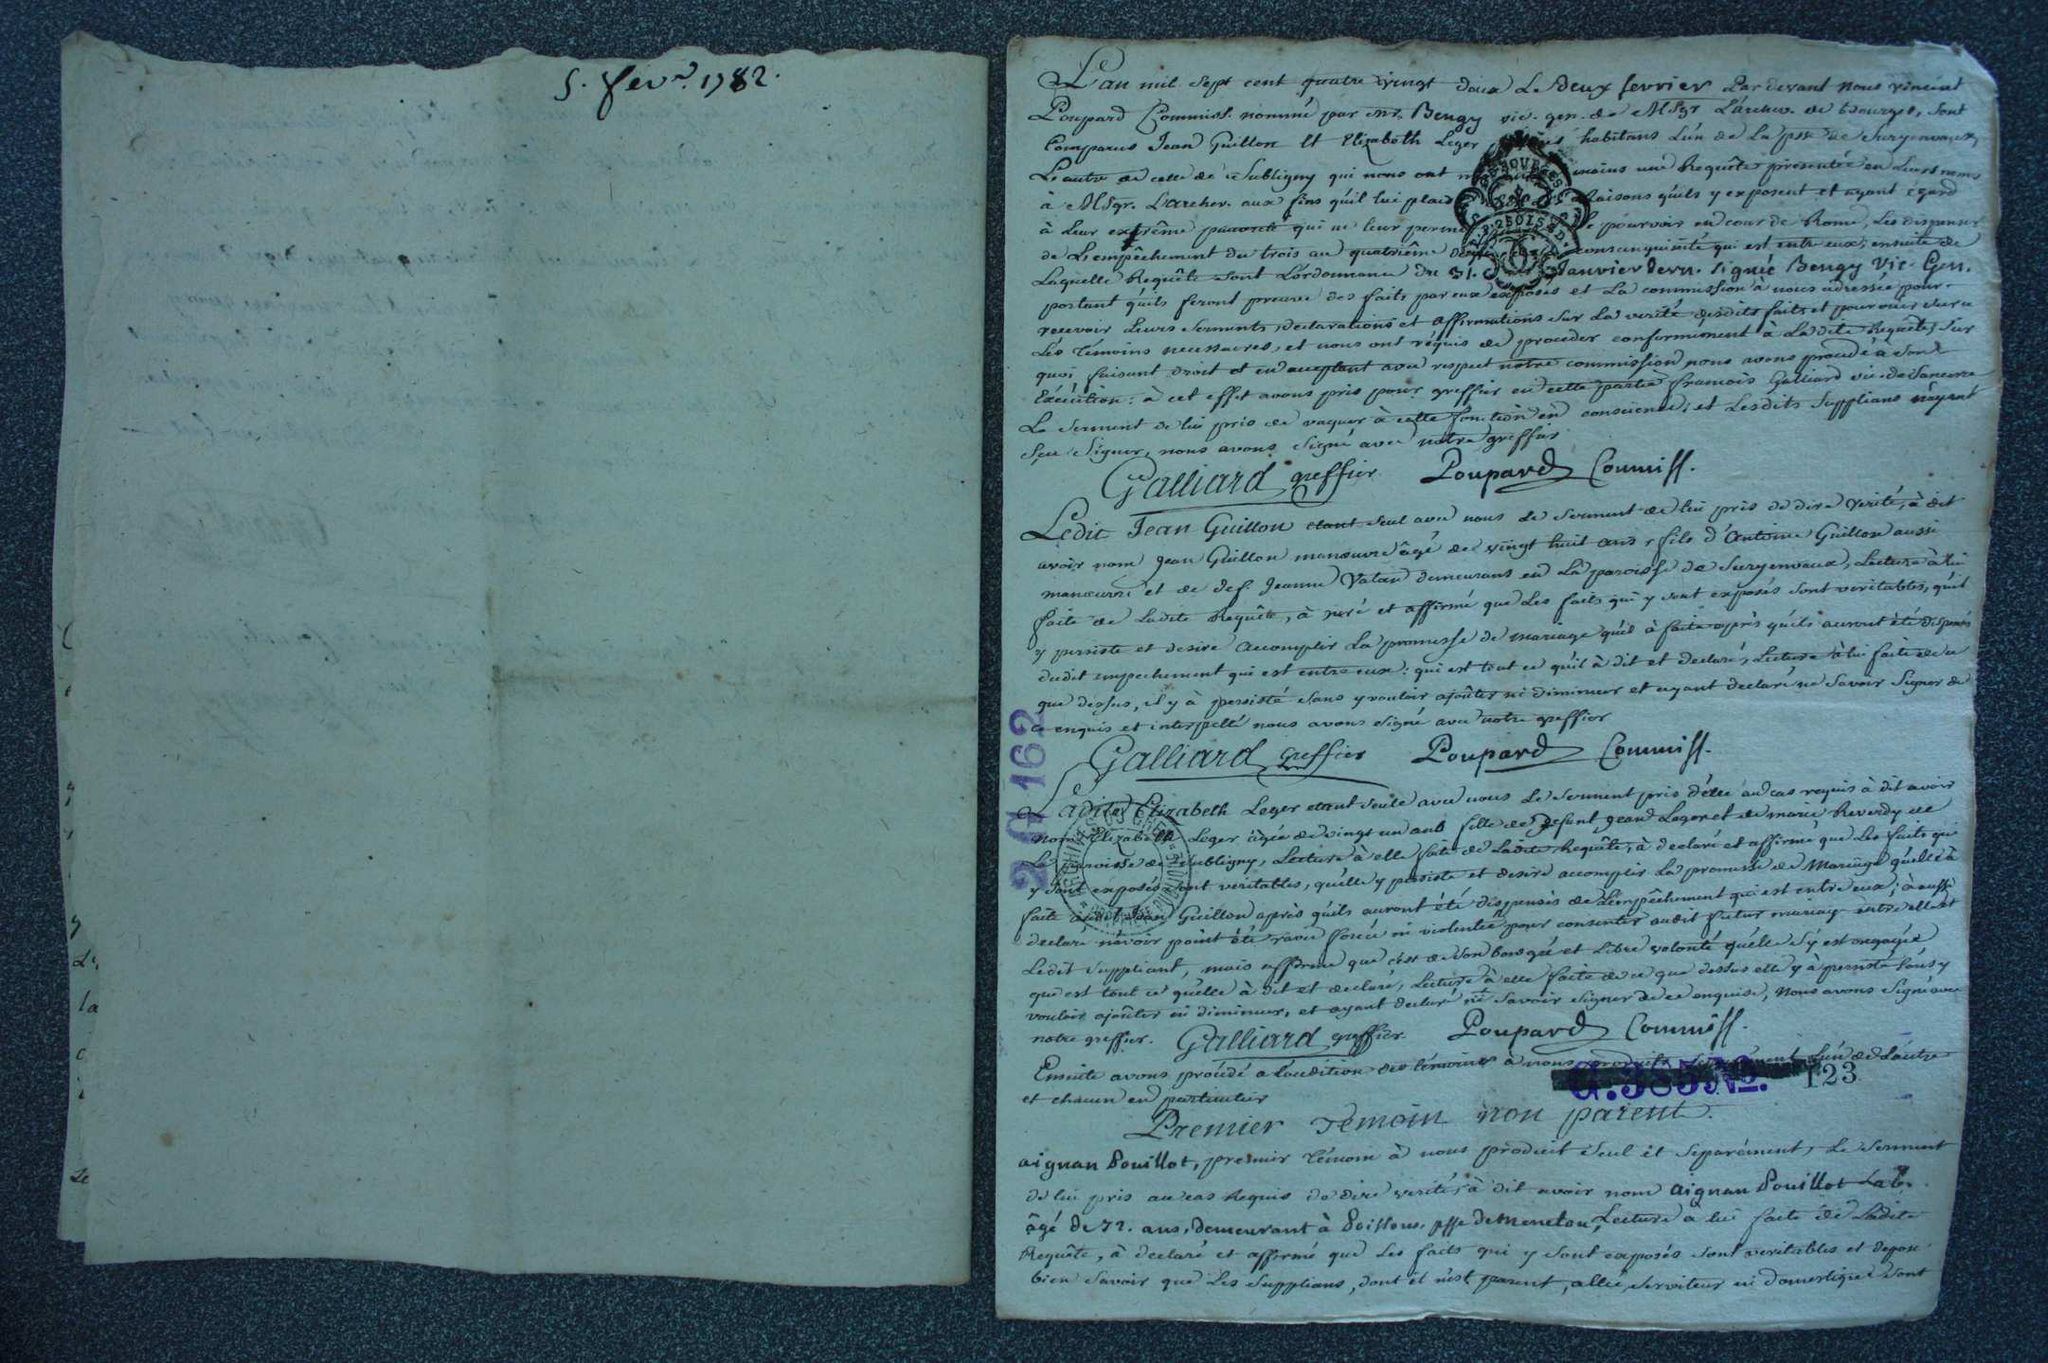 5. fevr. 1782.
L'an mil sept cent quatre vingt deux Le deux fevrier Par devant nous vincent
Poupard Commiss. nommé par mr. Bengy vic. gen. de Msgr L'archev. de Bourges, sont
Comparus Jean Guillon et Elizabeth Leger habitans L'un de La psse de Suryenvaux,
L'autre de celle de Subligny qui nous ont mains une Requête presentée en Leurs noms
à Msgr. L'archev. aux fins qu'il lui plaise Raisons qu'ils y exposent et ayant égard
à Leur extrême pauvreté qui ne leur permet pourvoir en cour de Rome, Les dispenser
de L'empêchement du trois au quatrième degré consanguinité qui est entre eux, ensuite de
Laquelle Requête sont L'ordonnance du 31. Janvier dern. Signée Bengy Vic. Gen.
portant qu'ils feront preuve des faits par eux exposés et La commission à nous adressée pour
recevoir Leurs serments, declarations et affirmations sur La verité desdits faits et pour ouir sur ce
Les témoins necessaires, et nous ont requis de proceder conformement à Ladite Requête, sur
quoi faisant droit et en acceptant avec respect notre commission nous avons procédé à son
Exécution : à cet effet avons pris pour greffier en cette partie francois Galliard vic. de Sancerre
Le serment de lui pris de vaquer à cette fonction en conscience, et Lesdits supplians n'ayant
sçu signer, nous avons signé avec notre greffier
Galliard greffier. Poupard Commiss.
Ledit Jean Guillon etant seul avec nous Le serment de lui pris de dire verité, à dit
avoir nom Jean Guillon manœuvre âgé de vingt huit ans, fils d'Antoine Guillon aussi
manœuvre et de def. Jeanne Vatan demeurans en La paroisse de Suryenvaux, Lecture à lui
faite de Ladite Requête, à juré et affirmé que Les faits qui y sont exposés sont veritables, qu'il
y persiste et desire accomplir La promesse de mariage qu'il à faite après qu'ils auront été dispensés
dudit empechement qui est entre eux : qui est tout ce qu'il à dit et declaré, Lecture à lui faite de ce
que dessus, il y à persisté sans y vouloir ajoûter ni diminuer et ayant declaré ne savoir signer de
ce enquis et interpellé nous avons signé avec notre greffier
Galliard greffier Poupard Commiss.
2 G 162
Ladite Elizabeth Leger etant seule avec nous Le serment pris d'elle au cas requis à dit avoir
nom Elizabeth Leger âgée de vingt un ans fille de defunt Jean Leger et de marie Reverdy de
La paroisse de Subligny, Lecture à elle faite de Ladite Requête, à declaré et affirmé que Les faits qui
y sont exposés sont veritables, qu'elle y persiste et desire accomplir La promesse de Mariage qu'elle à
faite audit Jean Guillon après qu'ils auront été dispensés de L'empêchement qui est entre eux ; à aussi
declaré n'avoir point été ravie forcée ni violentée pour consentir audit futur mariage entre elle et
Ledit suppliant, mais affirme que c'est de son bon gré et Libre volonté qu'elle s'y est engagée
que est tout ce qu'elle à dit et declaré, Lecture à elle faite de ce que dessus elle y à persisté sans y
vouloir ajoûter ni diminuer, et ayant declaré ne savoir signer de ce enquise, nous avons signé avec
notre greffier. Galliard greffier. Poupard Commiss.
Ensuite avons procédé à L'audition des témoins à nous produits L'un de L'autre
G.385 No. 123
et chacun en particulier
Premier Temoin non parent.
aignan Pouillot, premier témoin à nous produit seul et separément, Le serment
de lui pris au cas Requis de dire verité, à dit avoir nom aignan Pouillot Labr.
âgé de 72. ans, demeurant à Boissons, psse de Menetou, Lecture à lui faite de Ladite
Requête, à declaré et affirmé que Les faits qui y sont exposés sont veritables et depose
bien savoir que Les supplians, dont il n'est parent, allié, serviteur ni domestique sont